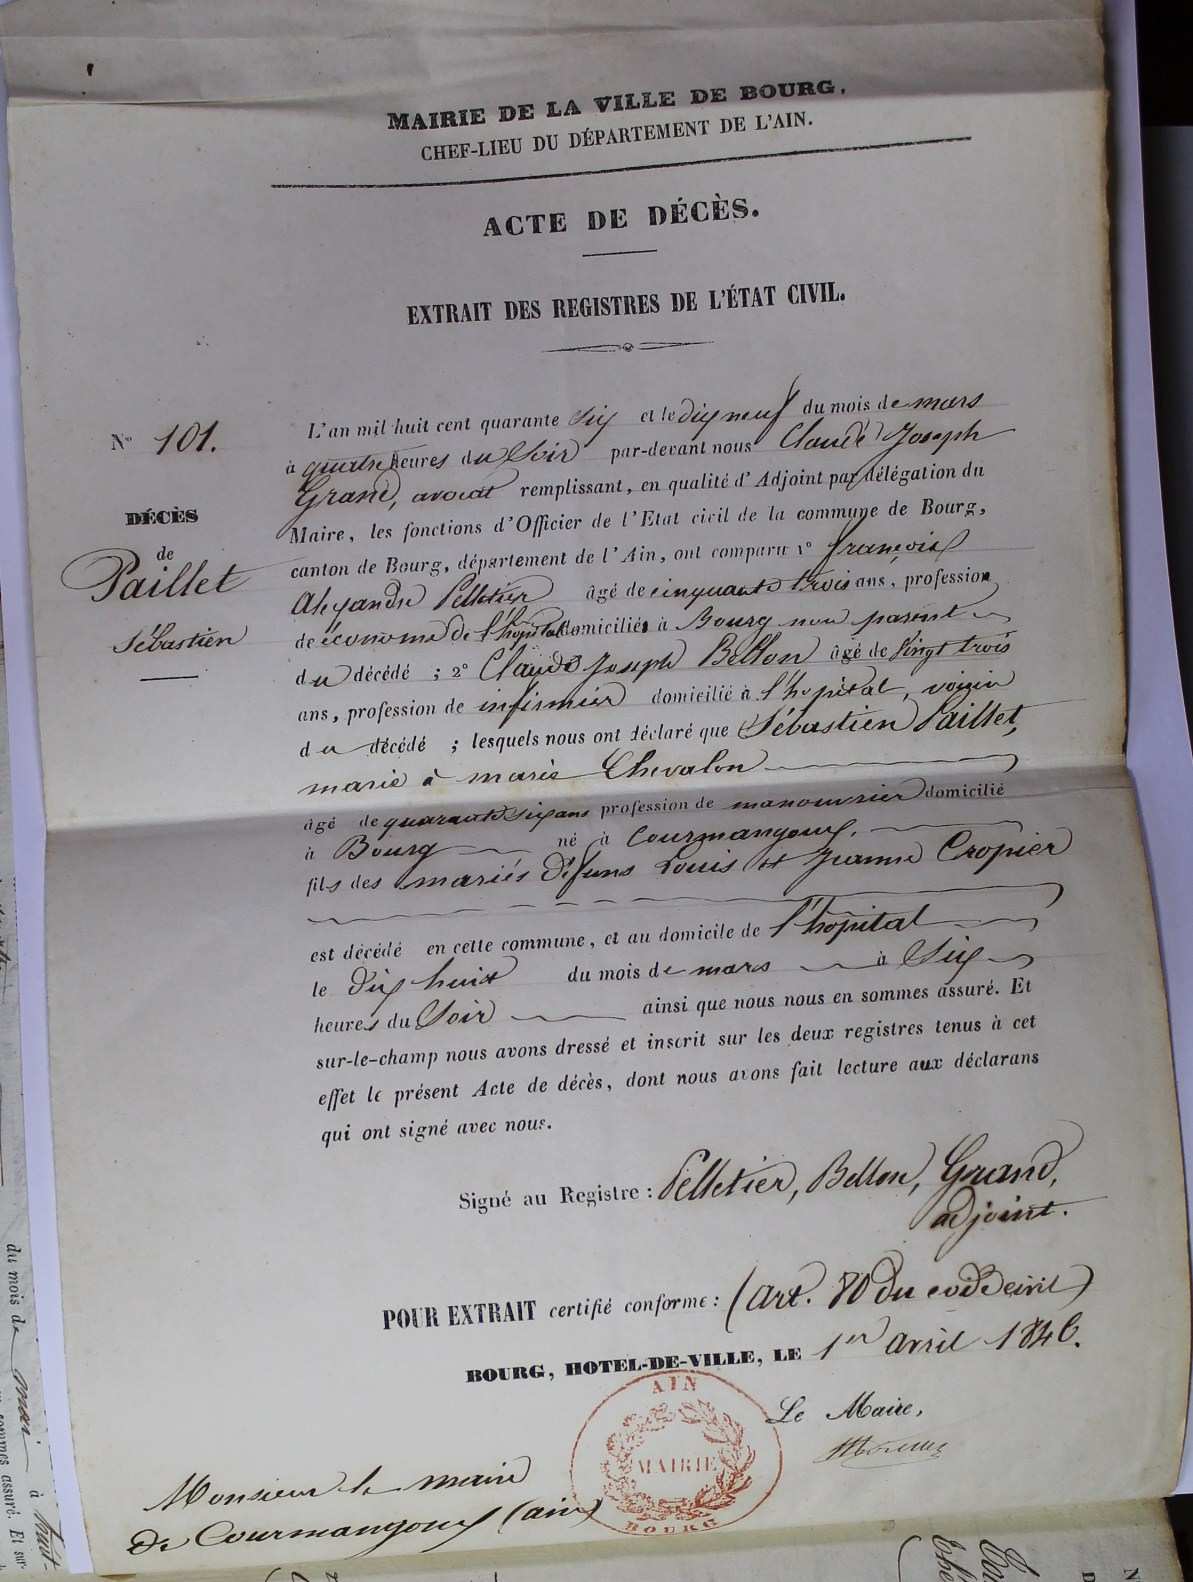 MAIRIE DE LA VILLE DE BOURG,
CHEF-LIEU DU DÉPARTEMENT DE L'AIN.
ACTE DE DÉCÈS.
EXTRAIT DES REGISTRES DE L'ÉTAT CIVIL.
N° 101.
DÉCÈS
de
Paillet
Sébastien
L'an mil huit cent quarante six et le dix neuf du mois de mars
à quatre heures du soir par-devant nous Claude Joseph
Grand, avocat remplissant, en qualité d'Adjoint par délégation du
Maire, les fonctions d'Officier de l'Etat civil de la commune de Bourg,
canton de Bourg, département de l'Ain, ont comparu 1° françois
Alexandre Pelletier âgé de cinquante trois ans, profession
de économe de l'hopital domiciliés à Bourg non parent
du décédé ; 2° Claude Joseph Bellon âgé de vingt trois
ans, profession de infirmier domicilié à l'hopital, voisin
du décédé ; lesquels nous ont déclaré que Sébastien Paillet,
marié à marie Chevalon
âgé de quarante six ans profession de manouvrier domicilié
à Bourg né à Courmangoux,
fils des mariés défuns Louis et Jeanne Cropier
est décédé en cette commune, et au domicile de l'hopital
le dix huit du mois de mars à six
heures du soir ainsi que nous nous en sommes assuré. Et
sur-le-champ nous avons dressé et inscrit sur les deux registres tenus à cet
effet le présent Acte de décès, dont nous avons fait lecture aux déclarans
qui ont signé avec nous.
Signé au Registre : Pelletier, Bellon, Grand,
adjoint.
POUR EXTRAIT certifié conforme : (art. 80 du code civil)
BOURG, HOTEL-DE-VILLE, LE 1er avril 1846.
Le Maire,
AIN
MAIRIE
BOURG
Monsieur le maire
de Courmangoux (ain)
du mois de mai à huit
sommes assuré. Et sur-